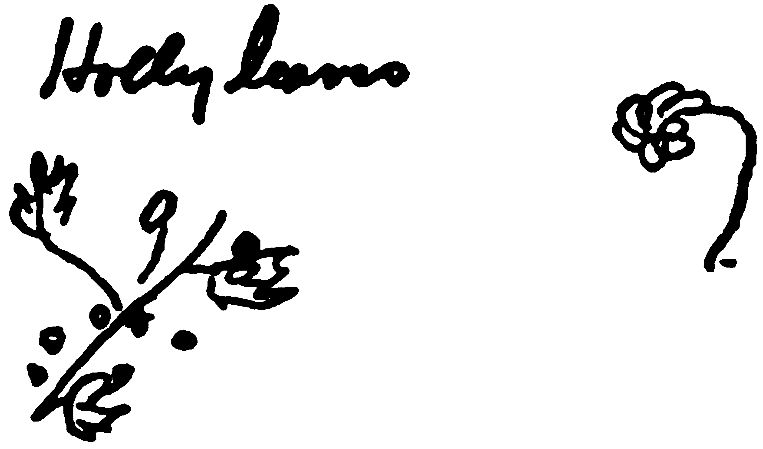 Holly leaves